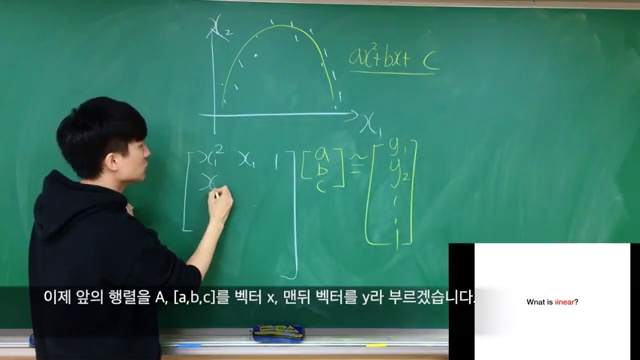 x₂
ax²+bx+ c
x₁
x₁² x₁ 1
x
a
b
c
≃
y₁
y₂
이제 앞의 행렬을 A, [a,b,c]를 벡터 x, 맨뒤 벡터를 y라 부르겠습니다.
Wnat is iinear?